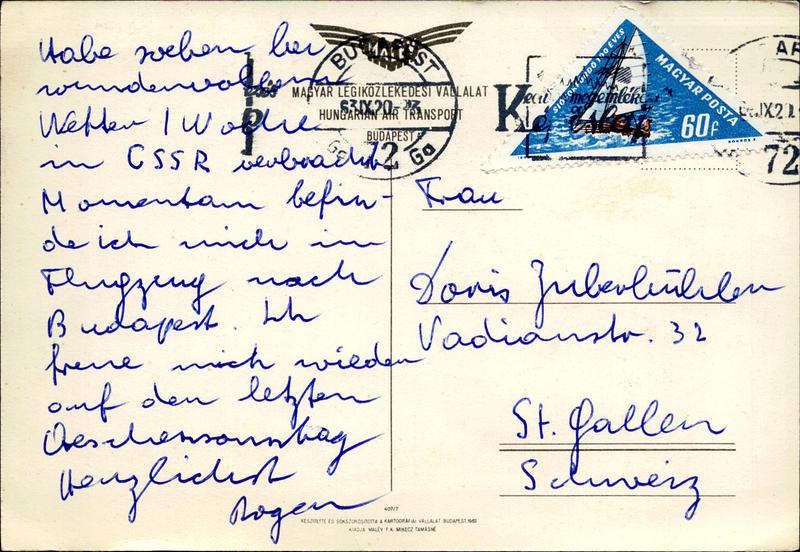 Habe soeben bei
wundervollem
Wetter 1 Woche
in CSSR verbracht
Momentan befin-
de ich mich im
Flugzeug nach
Budapest. Ich
freue mich wieder
auf den letzten
Herzlichst
Roger
MAGYAR LÉGIKÖZLEKEDÉSI VÁLLALAT
HUNGARIAN AIR TRANSPORT
BUDAPEST
BUDAPEST
63 IX 20
72
MAGYAR POSTA
60f
72
Frau
Doris Zuberbühler
Vadianstr. 32
St. Gallen
Schweiz
407/7
KÉSZÍTETTE ÉS SOKSZOROSÍTOTTA A KARTOGRÁFIAI VÁLLALAT BUDAPEST,
KIADJA MALÉV F.K. MIKECZ TAMÁSNÉ